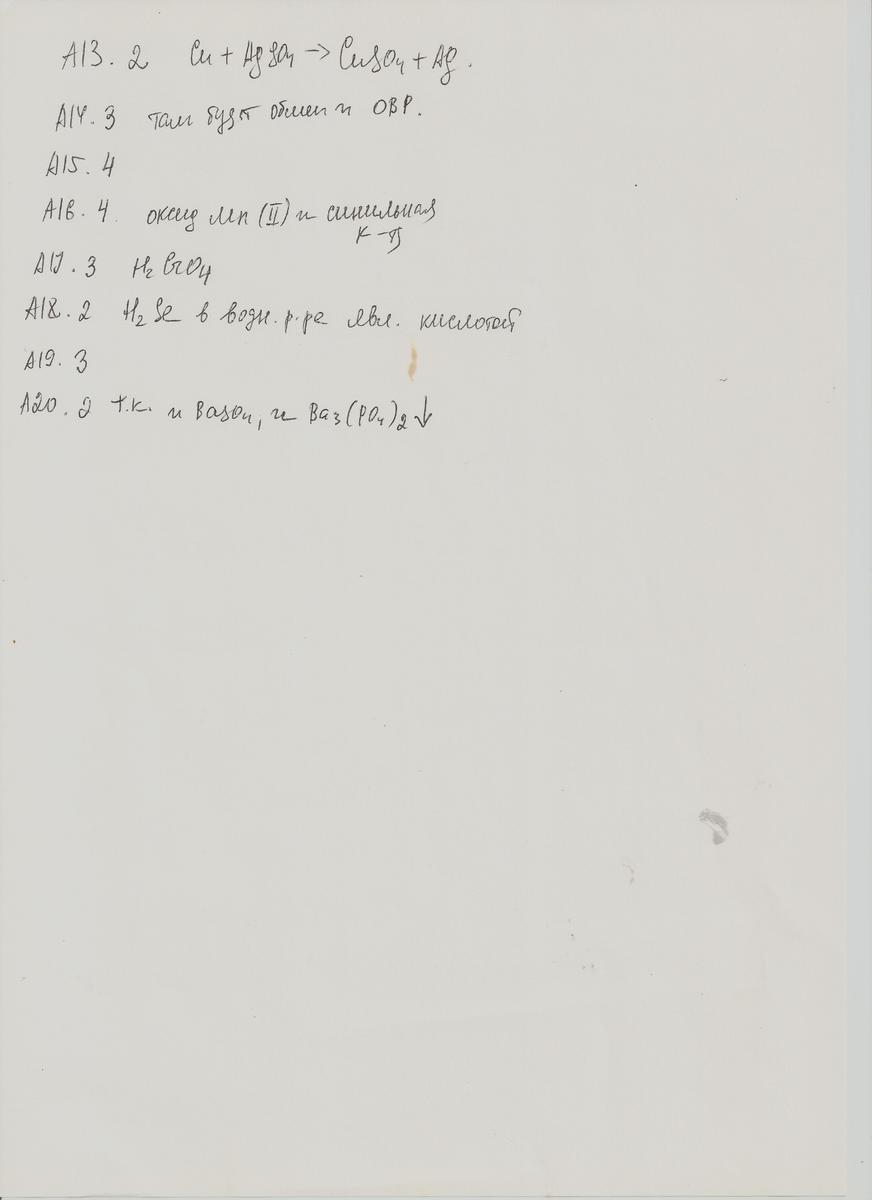 A13. 2 Cu + AgSO4 → CuSO4 + Ag.
A14. 3 там будет обмен и ОВР.
A15. 4
A16. 4. оксид Mn (II) и синильная
к-та
A17. 3 H2CrO4
A18. 2 H2Se в водн. р-ре явл. кислотой
A19. 3
A20. 2 т.к. и BaSO4, и Ba3(PO4)2↓